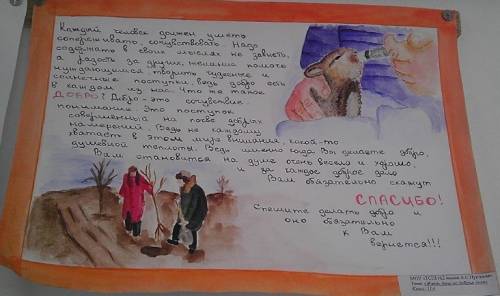 Каждый человек должен уметь
сопереживать, сочувствовать. Надо
содержать в своих мыслях не зависть,
а радость за других, желание помочь
нуждающимся, творить чудесные и
солнечные поступки, ведь добро есть
в каждом из нас. Что же такое
ДОБРО? Добро - это сочувствие,
понимание. Это поступок
совершенный на почве добрых
намерений. Ведь не каждому
хватает в этом мире внимания, какой-то
душевной теплоты. Ведь именно когда Вы делаете добро,
Вам становится на душе очень весело и хорошо,
и за каждое доброе дело
Вам обязательно скажут
СПАСИБО!
Спешите делать добро и
оно обязательно
к Вам
вернется!!!